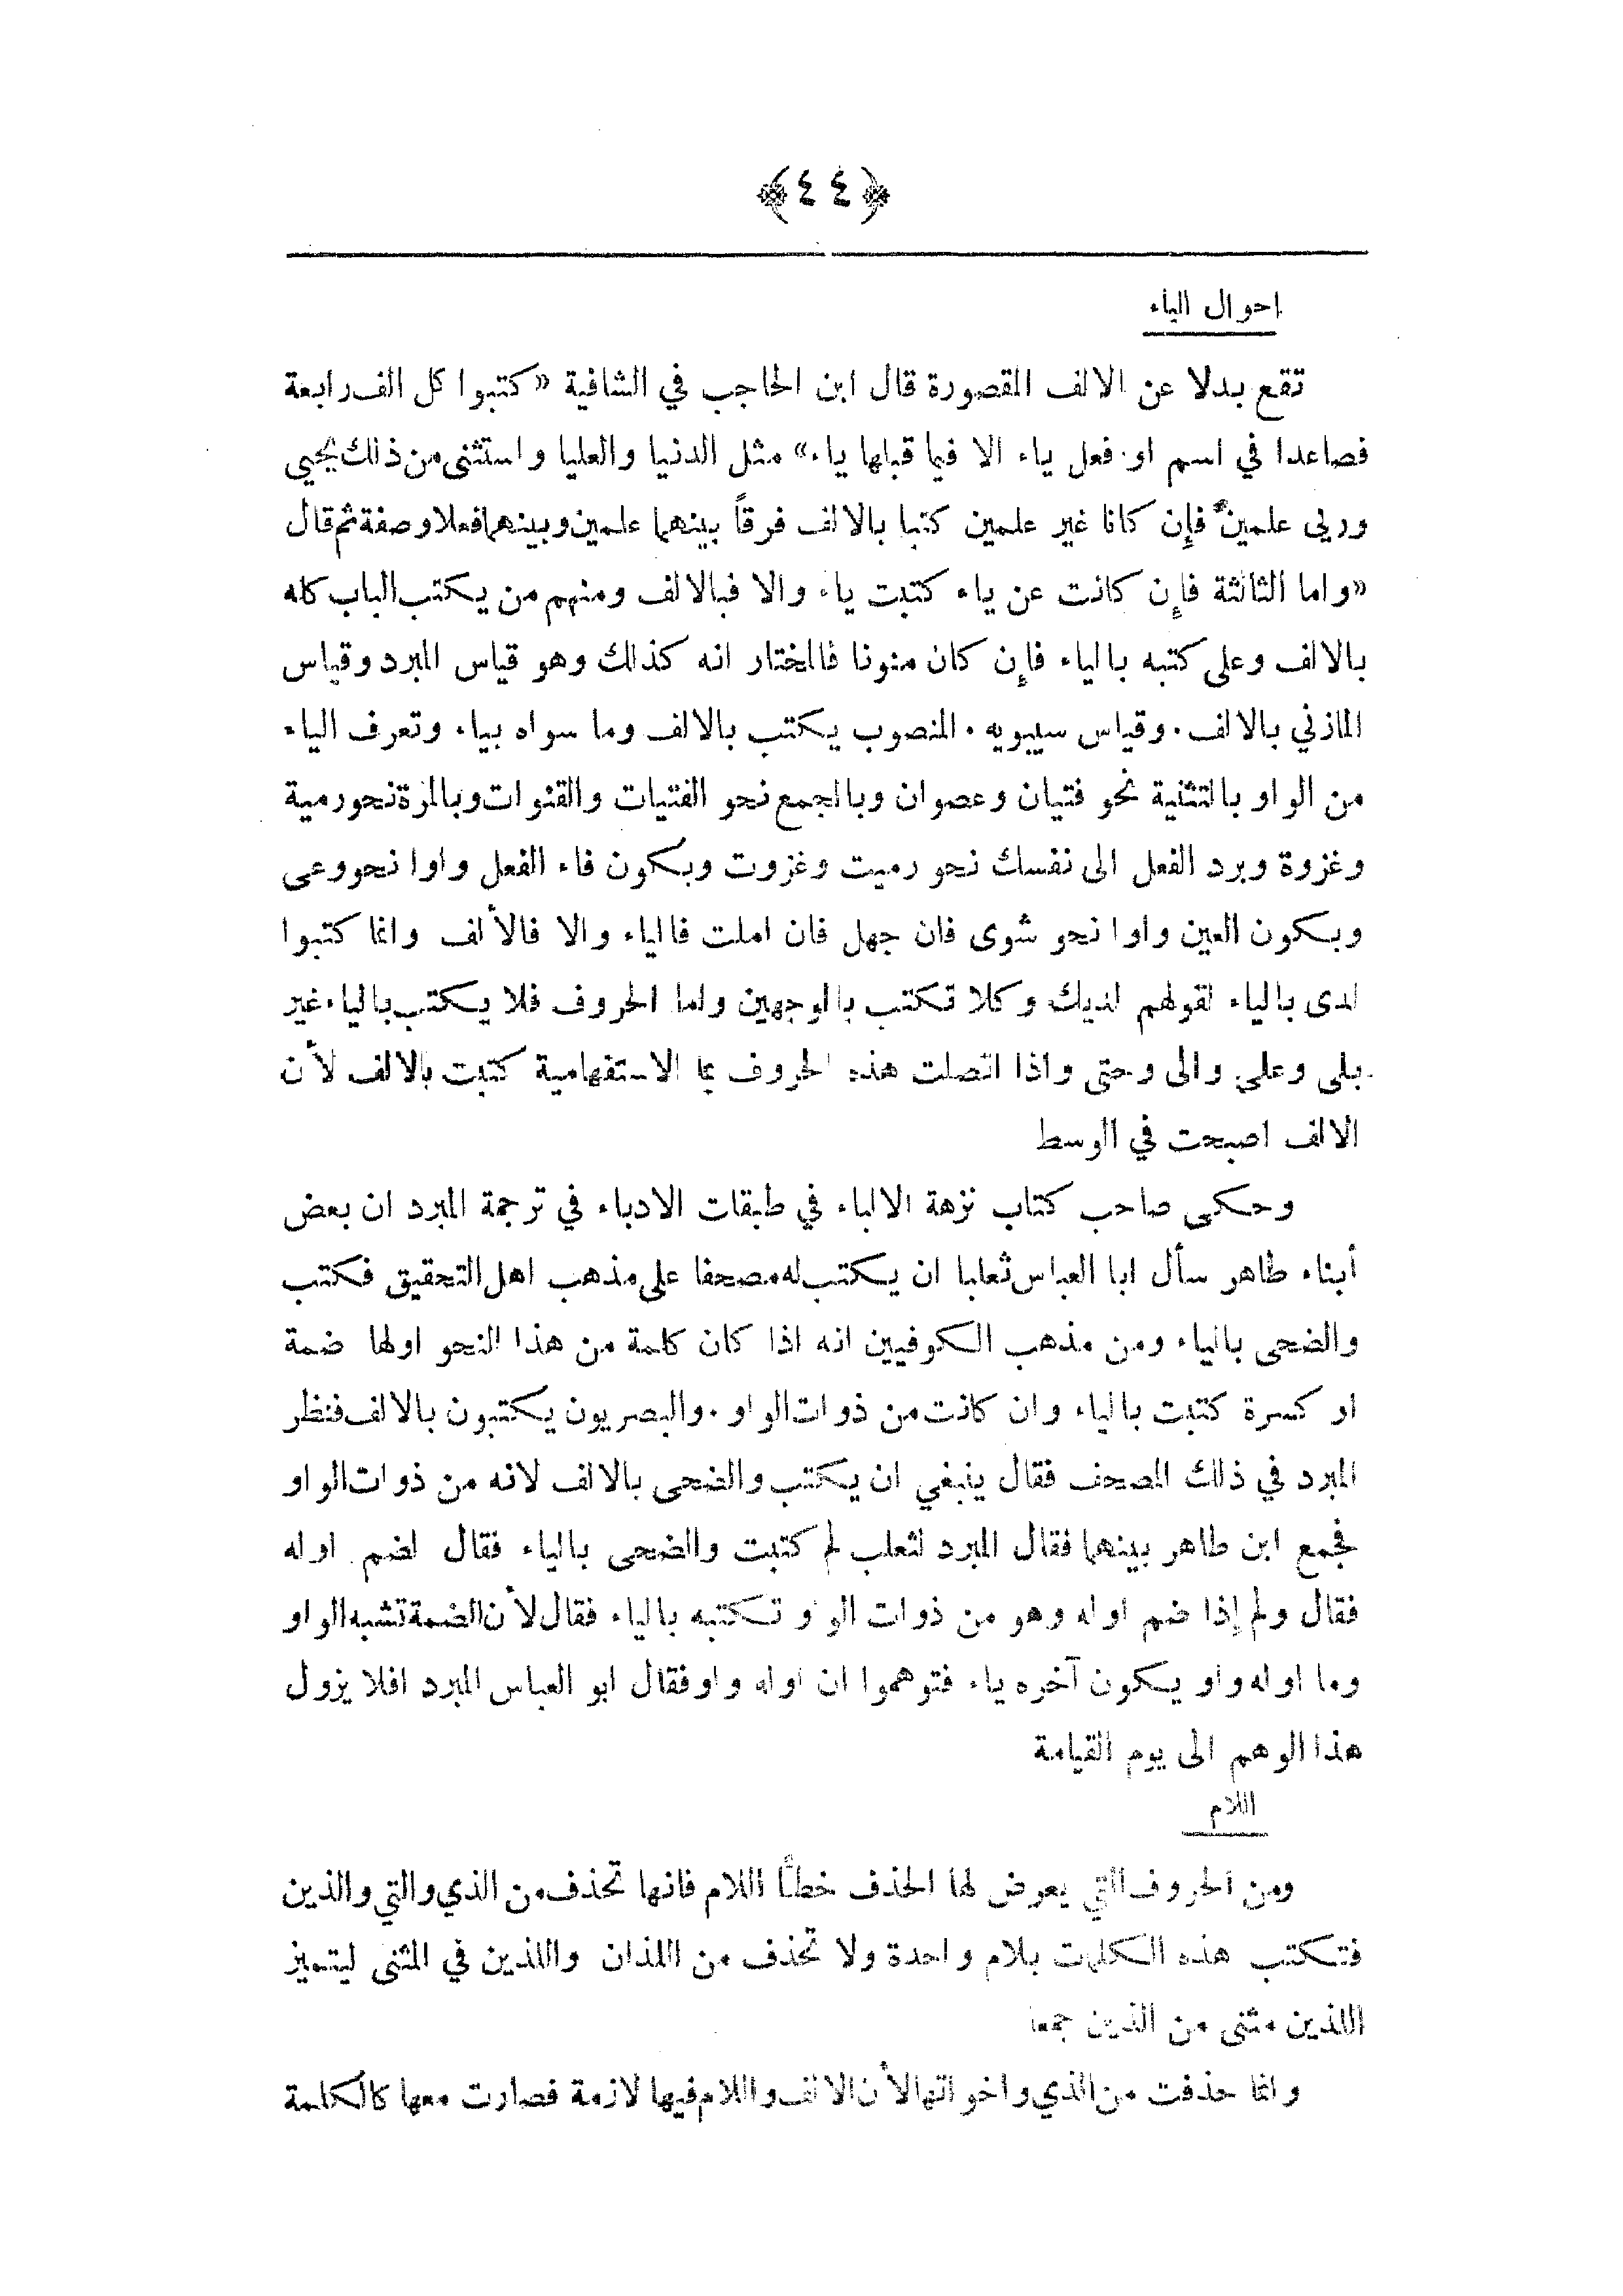 ﴿٤٤﴾
احوال الياء
تقع بدلا عن الالف المقصورة قال ابن الحاجب في الشافية «كتبوا كل الف رابعة
فصاعدا في اسم او فعل ياء الا فيما قبلها ياء» مثل الدنيا والعليا واستثنى من ذلك يحيى
وريى علمين فإن كانا غير علمين كتبا بالالف فرقاً بينهما علمين وبينهما فعلا وصفة ثم قال
«واما الثالثة فإن كانت عن ياء كتبت ياء والا فبالالف ومنهم من يكتب الباب كله
بالالف وعلى كتبه بالياء فإن كان منونا فالمختار انه كذلك وهو قياس المبرد وقياس
المازني بالالف . وقياس سيبويه . المنصوب يكتب بالالف وما سواه بياء وتعرف الياء
من الواو بالتثنية نحو فتيان وعصوان وبالجمع نحو الفتيات والقنوات وبالمرة نحو رمية
وغزوة وبرد الفعل الى نفسك نحو رميت وغزوت وبكون فاء الفعل واوا نحو وعى
وبكون العين واوا نحو شوى فان جهل فان املت فالياء والا فالألف وانما كتبوا
لدى بالياء لقولهم لديك وكلا تكتب بالوجهين واما الحروف فلا يكتب بالياء غير
بلى وعلى والى وحتى واذا اتصلت هذه الحروف بما الاستفهامية كتبت بالالف لأن
الالف اصبحت في الوسط
وحكى صاحب كتاب نزهة الالباء في طبقات الادباء في ترجمة المبرد ان بعض
أبناء طاهر سأل ابا العباس ثعلبا ان يكتب له مصحفا على مذهب اهل التحقيق فكتب
والضحى بالياء ومن مذهب الكوفيين انه اذا كان كلمة من هذا النحو اولها ضمة
او كسرة كتبت بالياء وان كانت من ذوات الواو . والبصريون يكتبون بالالف فنظر
المبرد في ذلك المصحف فقال ينبغي ان يكتب والضحى بالالف لانه من ذوات الواو
فجمع ابن طاهر بينهما فقال المبرد لثعلب لم كتبت والضحى بالياء فقال لضم اوله
فقال ولم إذا ضم اوله وهو من ذوات الواو تكتبه بالياء فقال لأن الضمة تشبه الواو
وما اوله واو يكون آخره ياء فتوهموا ان اوله واو فقال ابو العباس المبرد افلا يزول
هذا الوهم الى يوم القيامة
اللام
ومن الحروف التي يعرض لها الحذف خطاً اللام فانها تحذف من الذي والتي والذين
فتكتب هذه الكلمات بلام واحدة ولا تحذف من اللذان واللذين في المثنى ليتميز
اللذين مثنى من الذين جمعا
وانما حذفت من الذي واخواتها لأن الالف واللام فيها لازمة فصارت معها كالكلمة